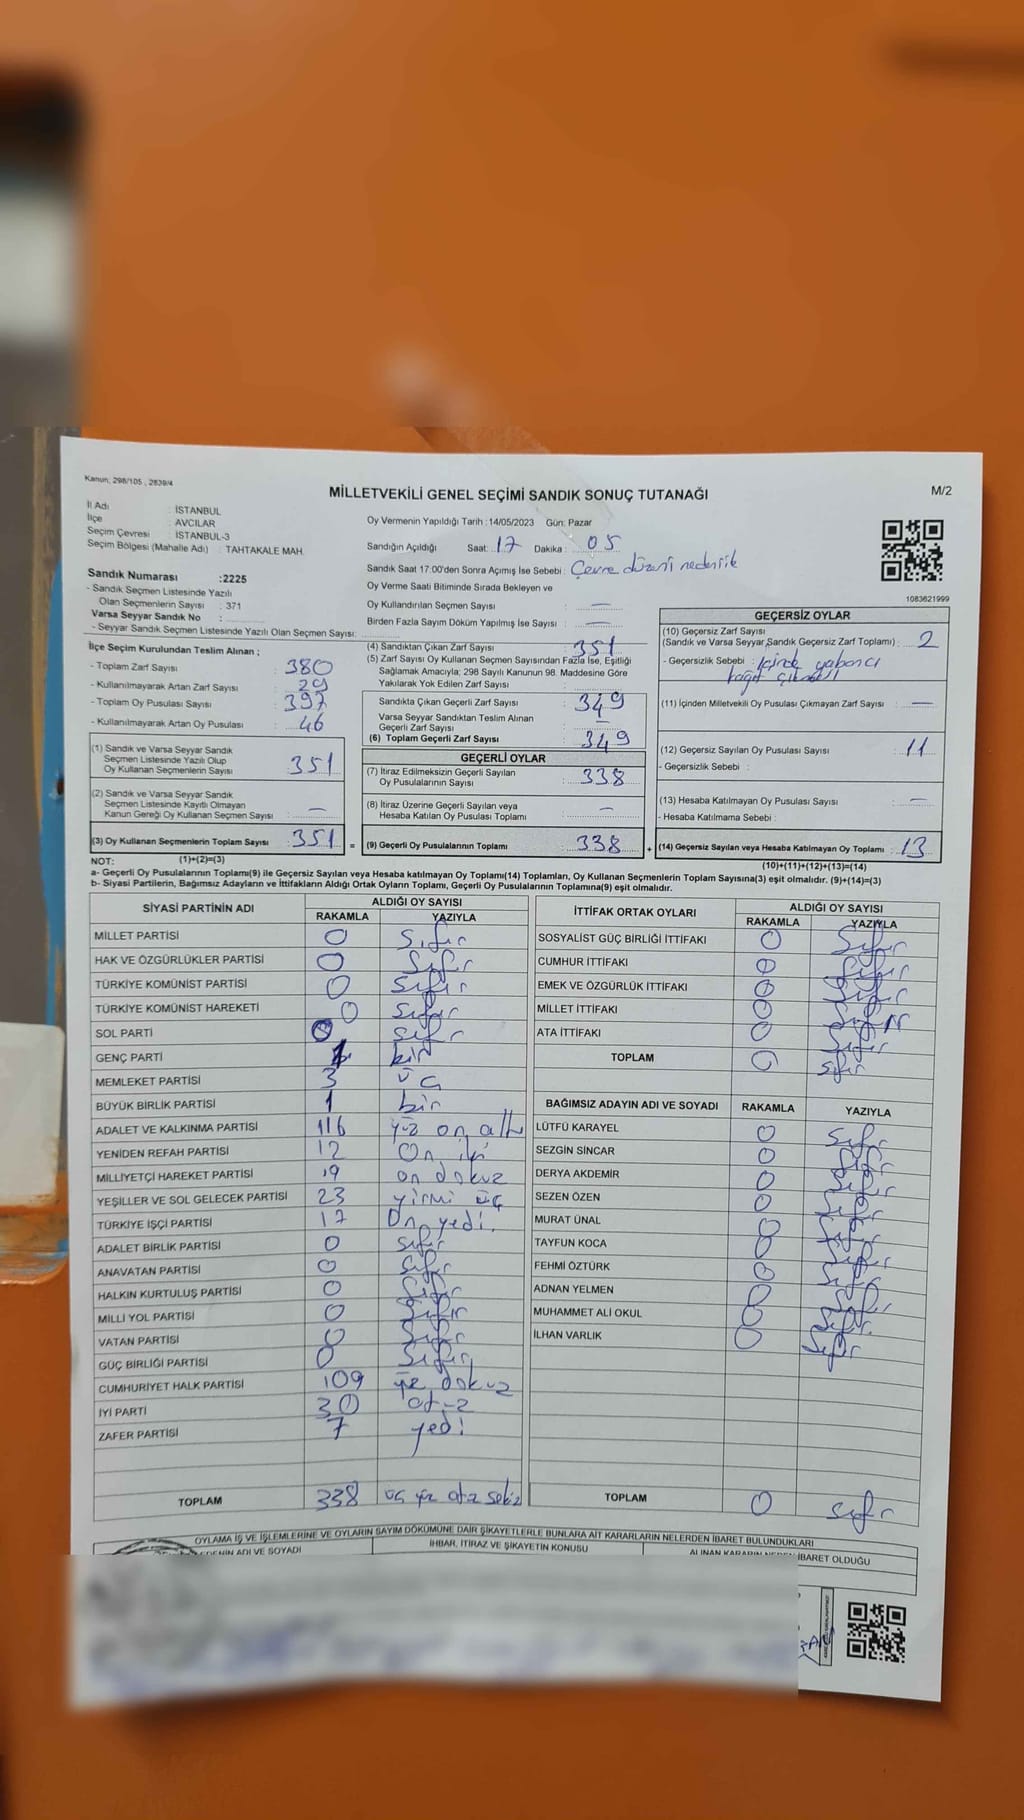 Kanun, 298/105 , 2839/4
MİLLETVEKİLİ GENEL SEÇİMİ SANDIK SONUÇ TUTANAĞI
M/2
İl Adı : İSTANBUL
İlçe : AVCILAR
Seçim Çevresi : İSTANBUL-3
Seçim Bölgesi (Mahalle Adı) : TAHTAKALE MAH.
Sandık Numarası :2225
- Sandık Seçmen Listesinde Yazılı
Olan Seçmenlerin Sayısı : 371
Varsa Seyyar Sandık No :
- Seyyar Sandık Seçmen Listesinde Yazılı Olan Seçmen Sayısı:
Oy Vermenin Yapıldığı Tarih :14/05/2023 Gün: Pazar
Sandığın Açıldığı Saat: 17 Dakika : 05
Sandık Saat 17:00'den Sonra Açımış İse Sebebi : Çevre düzeni
Oy Verme Saati Bitiminde Sırada Bekleyen ve
Oy Kullandırılan Seçmen Sayısı : —
Birden Fazla Sayım Döküm Yapılmış İse Sayısı : —
1083621999
İlçe Seçim Kurulundan Teslim Alınan ;
- Toplam Zarf Sayısı : 380
- Kullanılmayarak Artan Zarf Sayısı : 29
- Toplam Oy Pusulası Sayısı : 397
- Kullanılmayarak Artan Oy Pusulası : 46
(1) Sandık ve Varsa Seyyar Sandık
Seçmen Listesinde Yazılı Olup
Oy Kullanan Seçmenlerin Sayısı : 351
(2) Sandık ve Varsa Seyyar Sandık
Seçmen Listesinde Kayıtlı Olmayan
Kanun Gereği Oy Kullanan Seçmen Sayısı : —
(3) Oy Kullanan Seçmenlerin Toplam Sayısı : 351 =
(4) Sandıktan Çıkan Zarf Sayısı : 351
(5) Zarf Sayısı Oy Kullanan Seçmen Sayısından Fazla İse, Eşitliği
Sağlamak Amacıyla; 298 Sayılı Kanunun 98. Maddesine Göre
Yakılarak Yok Edilen Zarf Sayısı :
Sandıkta Çıkan Geçerli Zarf Sayısı : 349
Varsa Seyyar Sandıktan Teslim Alınan
Geçerli Zarf Sayısı : —
(6) Toplam Geçerli Zarf Sayısı : 349
GEÇERLİ OYLAR
(7) İtiraz Edilmeksizin Geçerli Sayılan
Oy Pusulalarının Sayısı : 338
(8) İtiraz Üzerine Geçerli Sayılan veya
Hesaba Katılan Oy Pusulası Toplamı : —
(9) Geçerli Oy Pusulalarının Toplamı : 338 +
GEÇERSİZ OYLAR
(10) Geçersiz Zarf Sayısı
(Sandık ve Varsa Seyyar Sandık Geçersiz Zarf Toplamı) : 2
- Geçersizlik Sebebi : içinde yabancı
kağıt
(11) İçinden Milletvekili Oy Pusulası Çıkmayan Zarf Sayısı : —
(12) Geçersiz Sayılan Oy Pusulası Sayısı : 11
- Geçersizlik Sebebi :
(13) Hesaba Katılmayan Oy Pusulası Sayısı : —
- Hesaba Katılmama Sebebi :
(14) Geçersiz Sayılan veya Hesaba Katılmayan Oy Toplamı : 13
NOT: (1)+(2)=(3)
(10)+(11)+(12)+(13)=(14)
a- Geçerli Oy Pusulalarının Toplamı(9) ile Geçersiz Sayılan veya Hesaba katılmayan Oy Toplamı(14) Toplamları, Oy Kullanan Seçmenlerin Toplam Sayısına(3) eşit olmalıdır. (9)+(14)=(3)
b- Siyasi Partilerin, Bağımsız Adayların ve İttifakların Aldığı Ortak Oyların Toplamı, Geçerli Oy Pusulalarının Toplamına(9) eşit olmalıdır.
SİYASİ PARTİNİN ADI ALDIĞI OY SAYISI
RAKAMLA YAZIYLA
MİLLET PARTİSİ 0 Sıfır
HAK VE ÖZGÜRLÜKLER PARTİSİ 0 Sıfır
TÜRKİYE KOMÜNİST PARTİSİ 0 Sıfır
TÜRKİYE KOMÜNİST HAREKETİ 0 sıfır
SOL PARTİ 0 sıfır
GENÇ PARTİ 1 bir
MEMLEKET PARTİSİ 3 üç
BÜYÜK BİRLİK PARTİSİ 1 bir
ADALET VE KALKINMA PARTİSİ 116 yüz on altı
YENİDEN REFAH PARTİSİ 12 On iki
MİLLİYETÇİ HAREKET PARTİSİ 19 on dokuz
YEŞİLLER VE SOL GELECEK PARTİSİ 23 yirmi üç
TÜRKİYE İŞÇİ PARTİSİ 17 On yedi.
ADALET BİRLİK PARTİSİ 0 sıfır
ANAVATAN PARTİSİ 0 Sıfır
HALKIN KURTULUŞ PARTİSİ 0 Sıfır
MİLLİ YOL PARTİSİ 0 Sıfır
VATAN PARTİSİ 0 Sıfır
GÜÇ BİRLİĞİ PARTİSİ 0 Sıfır
CUMHURİYET HALK PARTİSİ 109 yüz dokuz
İYİ PARTİ 30 otuz
ZAFER PARTİSİ 7 yedi
TOPLAM 338 üç yüz otuz sekiz
İTTİFAK ORTAK OYLARI ALDIĞI OY SAYISI
RAKAMLA YAZIYLA
SOSYALİST GÜÇ BİRLİĞİ İTTİFAKI 0 Sıfır
CUMHUR İTTİFAKI 0 Sıfır
EMEK VE ÖZGÜRLÜK İTTİFAKI 0 Sıfır
MİLLET İTTİFAKI 0 Sıfır
ATA İTTİFAKI 0 Sıfır
TOPLAM 0 sıfır
BAĞIMSIZ ADAYIN ADI VE SOYADI RAKAMLA YAZIYLA
LÜTFÜ KARAYEL 0 Sıfır
SEZGİN SİNCAR 0 Sıfır
DERYA AKDEMİR 0 Sıfır
SEZEN ÖZEN 0 Sıfır
MURAT ÜNAL 0 Sıfır
TAYFUN KOCA 0 Sıfır
FEHMİ ÖZTÜRK 0 Sıfır
ADNAN YELMEN 0 Sıfır
MUHAMMET ALİ OKUL 0 Sıfır.
İLHAN VARLIK 0 Sıfır
TOPLAM 0 sıfır
OYLAMA İŞ VE İŞLEMLERİNE VE OYLARIN SAYIM DÖKÜMÜNE DAİR ŞİKAYETLERLE BUNLARA AİT KARARLARIN NELERDEN İBARET BULUNDUKLARI
ADI VE SOYADI İHBAR, İTİRAZ VE ŞİKAYETİN KONUSU ALINAN KARARIN NEDEN İBARET OLDUĞU